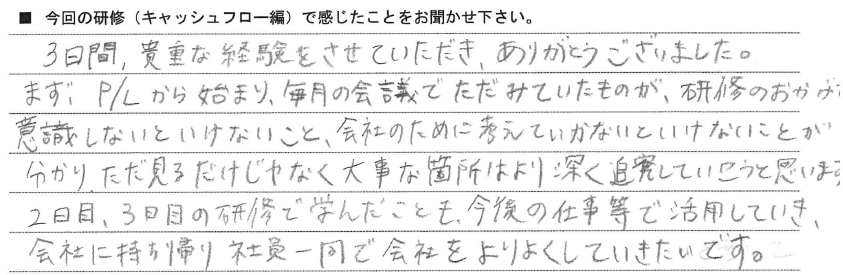 ■ 今回の研修（キャッシュフロー編）で感じたことをお聞かせ下さい。
3日間，貴重な経験をさせていただき、ありがとうございました。
まず、P/Lから始まり、毎月の会議でただみていたものが、研修のおかげで
意識しないといけないこと、会社のために考えていかないといけないことが
分かり、ただ見るだけじゃなく大事な箇所はより深く追究していこうと思います
2日目、3日目の研修で学んだことも、今後の仕事等で活用していき、
会社に持ち帰り社員一同で会社をよりよくしていきたいです。